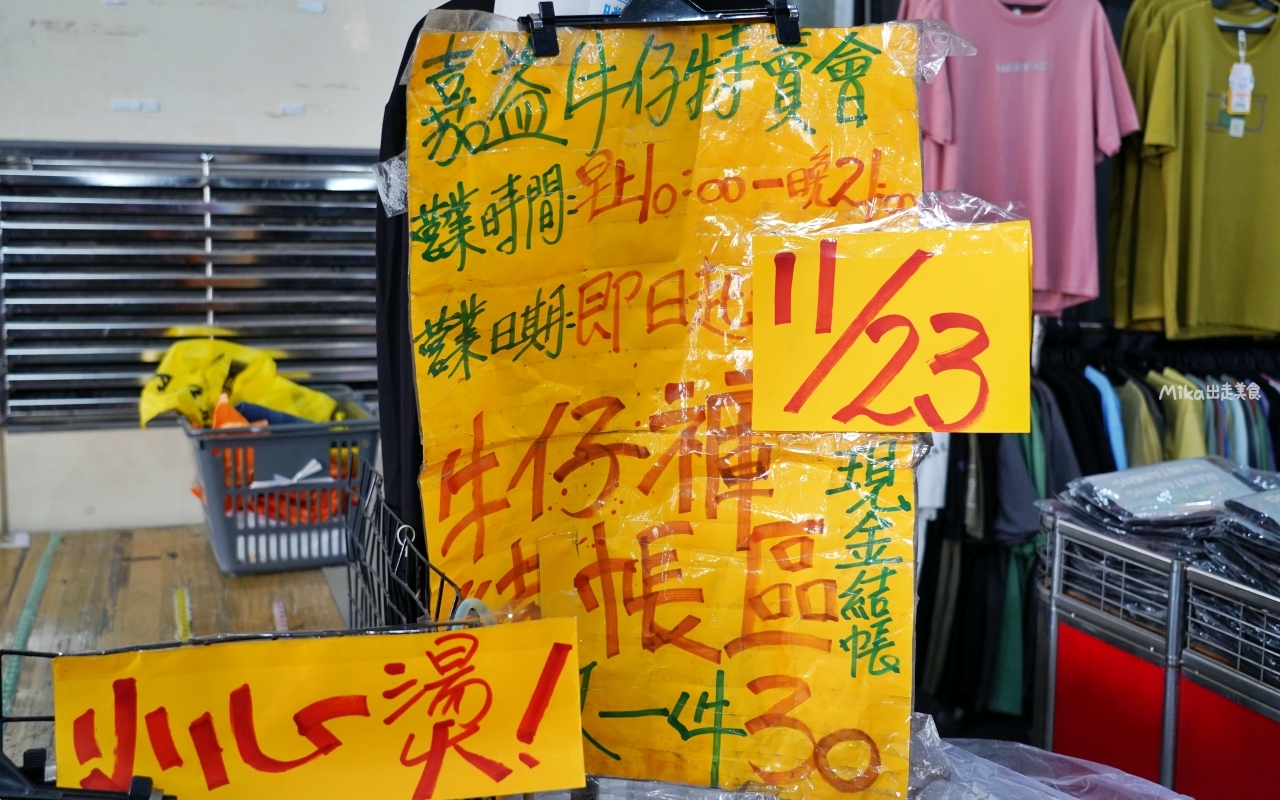 嘉益牛仔特賣會
營業時間:早上10:00-晚21:00
營業日期:即日起
11/23
牛仔褲
結帳區
現金結帳
一件30
小心燙!
Mika出走美食